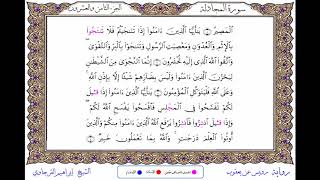 سورة المجادلة الجزء الثامن والعشرون
ٱلْمَصِيرُ يَٰٓأَيُّهَا ٱلَّذِينَ ءَامَنُوٓا۟ إِذَا تَنَٰجَيْتُمْ فَلَا تَنتَجُوا۟
بِٱلْإِثْمِ وَٱلْعُدْوَٰنِ وَمَعْصِيَتِ ٱلرَّسُولِ وَتَنَٰجَوْا۟ بِٱلْبِرِّ وَٱلتَّقْوَىٰ
وَٱتَّقُوا۟ ٱللَّهَ ٱلَّذِىٓ إِلَيْهِ تُحْشَرُونَ إِنَّمَا ٱلنَّجْوَىٰ مِنَ ٱلشَّيْطَٰنِ
لِيَحْزُنَ ٱلَّذِينَ ءَامَنُوا۟ وَلَيْسَ بِضَآرِّهِمْ شَيْـًٔا إِلَّا بِإِذْنِ ٱللَّهِ
وَعَلَى ٱللَّهِ فَلْيَتَوَكَّلِ ٱلْمُؤْمِنُونَ يَٰٓأَيُّهَا ٱلَّذِينَ ءَامَنُوٓا۟ إِذَا قِيلَ
لَكُمْ تَفَسَّحُوا۟ فِى ٱلْمَجْلِسِ فَٱفْسَحُوا۟ يَفْسَحِ ٱللَّهُ لَكُمْ
وَإِذَا قِيلَ ٱنشِزُوا۟ فَٱنشِزُوا۟ يَرْفَعِ ٱللَّهُ ٱلَّذِينَ ءَامَنُوا۟ مِنكُمْ وَٱلَّذِينَ
أُوتُوا۟ ٱلْعِلْمَ دَرَجَٰتٍ وَٱللَّهُ بِمَا تَعْمَلُونَ خَبِيرٌ
رواية رويس عن يعقوب الشيخ إبراهيم